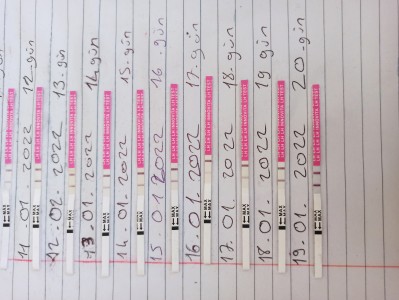 11.01.2022 12.gün
12.02.2022 13.gün
13.01.2022 14.gün
14.01.2022 15.gün
15.01.2022 16.gün
16.01.2022 17.gün
17.01.2022 18.gün
18.01.2022 19.gün
19.01.2022 20.gün
MAX
MAX
MAX
MAX
MAX
MAX
MAX
MAX
MAX
MAX